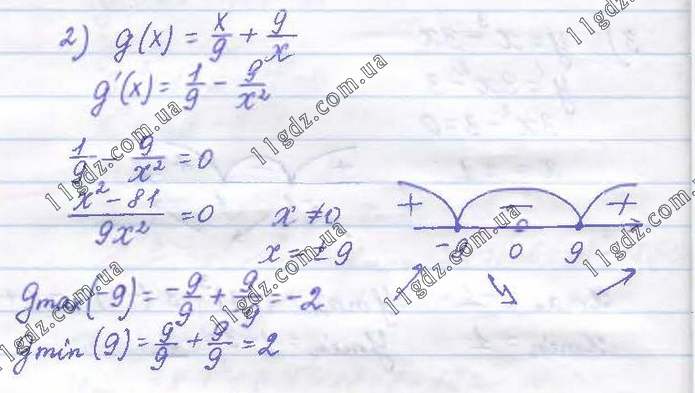 2) g(x) = x/9 + 9/x
g'(x) = 1/9 - 9/x²
1/9 - 9/x² = 0
(x² - 81)/(9x²) = 0   x ≠ 0
x = ± 9
+ - +
-9 0 9
g max (-9) = -9/9 + 9/-9 = -2
g min (9) = 9/9 + 9/9 = 2
11gdz.com.ua
11gdz.com.ua
11gdz.com.ua
11gdz.com.ua
11gdz.com.ua
11gdz.com.ua
11gdz.com.ua
11gdz.com.ua
11gdz.com.ua